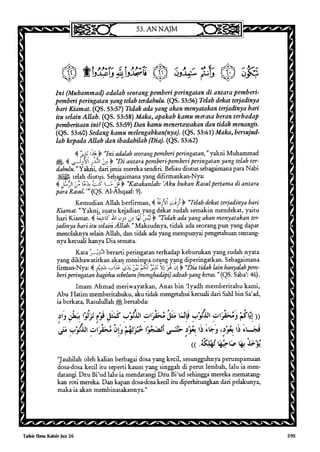 53. AN NAJM
Ini (Muhammad) adalah seorang pemberi peringatan di antara pemberi-
pemberi peringatan yang telah terdahulu. (QS. 53:56) Telah dekat terjadinya
hari Kiamat. (QS. 53:57) Tidak ada yang akan menyatakan terjadinya hari
itu selain Allah. (QS. 53:58) Maka, apakah kamu merasa heran terhadap
pemberitaan ini? (QS. 53:59) Dan kamu menertawakan dan tidak menangis.
(QS. 53:60) Sedang kamu melengahkan(nya). (QS. 53:61) Maka, bersujud-
lah kepada Allah dan ibadahilah (Dia). (QS. 53:62)
﴿ هَذَا نَذِيرٌ ﴾ "Ini adalah seorang pemberi peringatan," yakni Muhammad
ﷺ. ﴿ مِنَ النُّذُرِ الْأُولَى ﴾ "Di antara pemberi-pemberi peringatan yang telah ter-
dahulu." Yakni, dari jenis mereka sendiri. Beliau diutus sebagaimana para Nabi
telah diutus. Sebagaimana yang difirmankan-Nya:
﴿ قُلْ مَا كُنْتُ بِدْعًا مِنَ الرُّسُلِ ﴾ "Katakanlah: 'Aku bukan Rasul pertama di antara
para Rasul.'" (QS. Al-Ahqaaf: 9).
Kemudian Allah berfirman, ﴿ أَزِفَتِ الْآزِفَةُ ﴾ "Telah dekat terjadinya hari
Kiamat." Yakni, suatu kejadian yang dekat sudah semakin mendekat, yaitu
hari Kiamat. ﴿ لَيْسَ لَهَا مِنْ دُونِ اللَّهِ كَاشِفَةٌ ﴾ "Tidak ada yang akan menyatakan ter-
jadinya hari itu selain Allah." Maksudnya, tidak ada seorang pun yang dapat
menolaknya selain Allah, dan tidak ada yang mempunyai pengetahuan tentang-
nya kecuali Hanya Dia semata.
Kata نَذِيرٌ berarti peringatan terhadap keburukan yang sudah nyata
yang dikhawatirkan akan menimpa orang yang diperingatkan. Sebagaimana
firman-Nya: ﴿ إِنْ هُوَ إِلَّا نَذِيرٌ لَكُمْ بَيْنَ يَدَيْ عَذَابٍ شَدِيدٍ ﴾ "Dia tidak lain hanyalah pem-
beri peringatan bagimu sebelum (menghadapi) adzab yang keras." (QS. Saba': 46).
Imam Ahmad meriwayatkan, Anas bin 'Iyadh memberitahu kami,
Abu Hatim memberitahuku, aku tidak mengetahui kecuali dari Sahl bin Sa'ad,
ia berkata, Rasulullah ﷺ bersabda:
"Jauhilah oleh kalian berbagai dosa yang kecil, sesungguhnya perumpamaan
dosa-dosa kecil itu seperti kaum yang singgah di perut lembah, lalu ia men-
datangi Dzu Bi'ud lalu ia mendatangi Dzu Bi'ud sehingga mereka mematang-
kan roti mereka. Dan kapan dosa-dosa kecil itu diperhitungkan dari pelakunya,
maka ia akan membinasakannya."
Tafsir Ibnu Katsir Juz 26
595